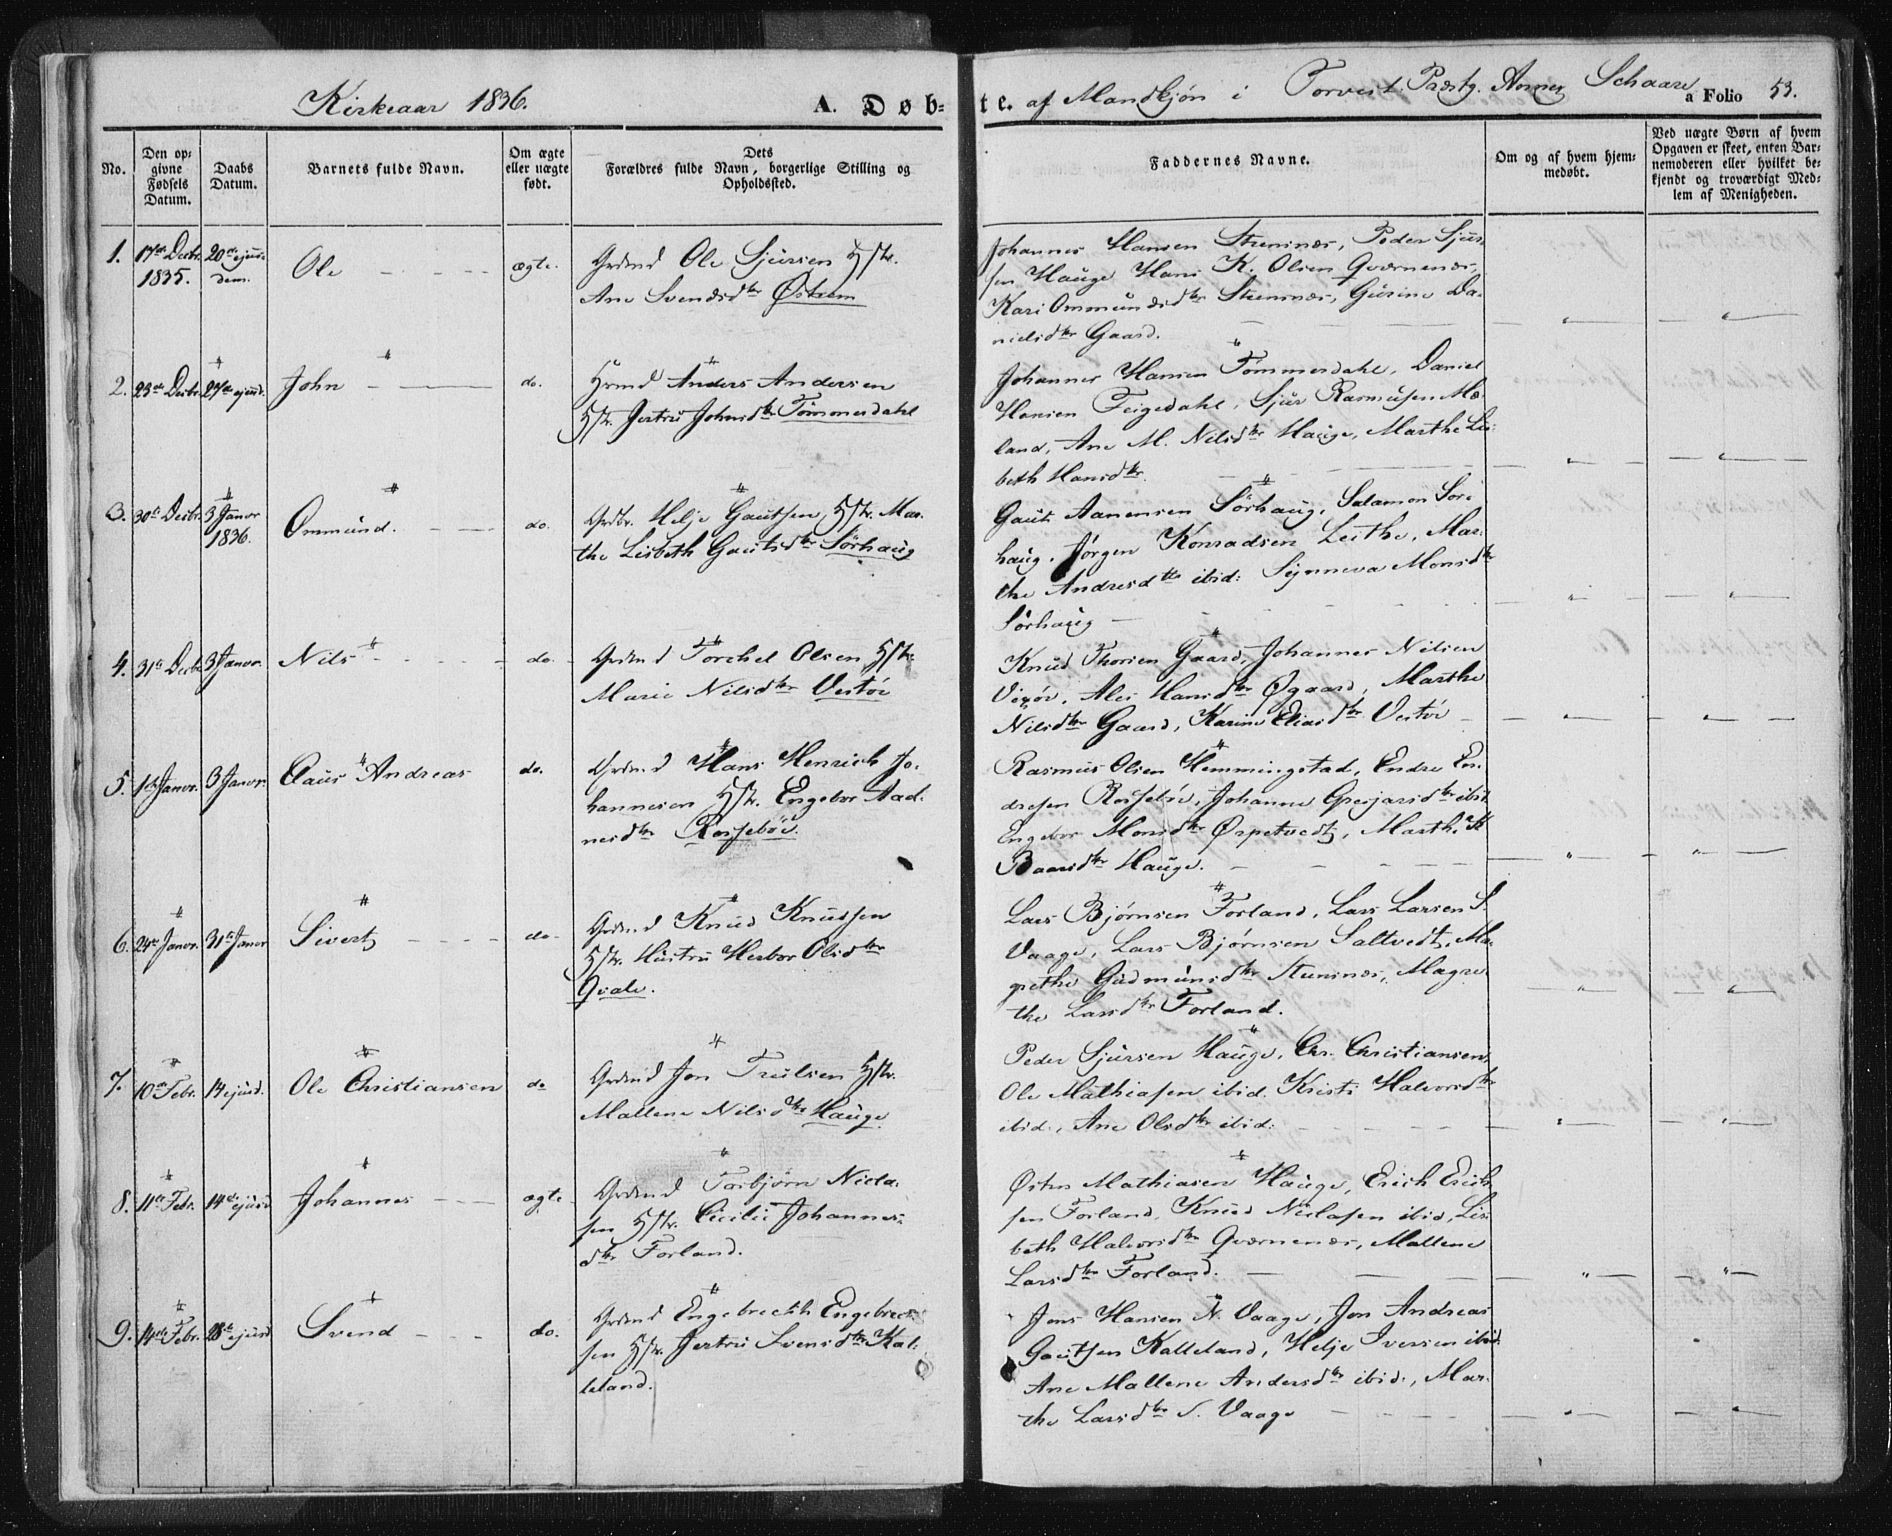 Kirkeaar 1836.
A. Døb-
te. af Mandkjøn i Torvest. Præstg. Annex Schaare a Folio 53.
No.
Den op-
givne
Fødsels
Datum.
Daabs
Datum.
Barnets fulde Navn.
Om ægte
eller uægte
født.
Dets
Forældres fulde Navn, borgerlige Stilling og
Opholdssted.
Faddernes Navne.
Om og af hvem hjem-
medøbt.
Ved uægte Børn af hvem
Opgaven er skeet, enten Bar-
nemoderen eller hvilket be-
kjendt og troværdigt Med-
lem af Menigheden.
1.
17de Decbr.
1835.
20de ejus-
dem.
Ole
ægte.
Grdmd Ole Sjursen Hstr.
Ane Svendsdtr Østrem
Johannes Hansen Steensnæs, Peder Sjur-
sen Hauge Hans K. Olsen Qværnenæs,
Kari Ommundsdtr Steensnæs, Gurine Da-
nielsdtr Gaard.
2.
23de Decbr.
27de ejusd.
John
do.
Hmd Anders Andersen
Hstr. Jertru Johnsdtr Tømmerdahl
Johannes Hansen Tømmerdahl, Daniel
Hansen Feigedahl, Sjur Rasmusen Mæ-
land, Ane M. Nilsdtr Hauge, Marthe Lis-
beth Hansdtr.
3.
30te Decbr.
3 Janvr
1836.
Ommund.
do.
Grdbr. Helje Gautsen, Hstr. Mar-
the Lisbeth Gautsdtr Sørhaug
Gaute Aanensen Sørhaug, Salamon Sør-
haug, Jørgen Konradsen Leithe, Mar-
the Andresdtr ibid: Synneva Monsdtr
Sørhaug
4.
31te Decbr
3 Janvr.
Nils
do.
Grdmd Torchel Olsen Hstr.
Marie Nilsdtr Vestøv
Knud Thorsen Gaard, Johannes Nilsen
Vestøv, Ales Hansdtr Øgaard, Marthe
Nilsdtr Gaard, Karine Eliasdtr Vestøv
5.
1ste Janvr.
3 Janvr.
Claus Andreas
do.
Grdmd Hans Henrich Jo-
hannesen Hstr. Engebor Aad-
nesdtr Rossebøe.
Rasmus Olsen Hemmingstad, Endre En-
dresen Rossebøe, Johanne Gresjarsdtr ibid.
Engebor Monsdtr Ørpetvedt, Marthe K
Baarsdtr Hauge.
6.
24de Janvr.
31te Janvr
Sivert
do.
Grdmd Knud Knudsen
Hstr. Hustru Herbor Olsdtr
Qvale.
Lars Bjørnsen Forland, Lars Larsen S.
Vaage, Lars Bjørnsen Saltvedt, Ma-
grethe Gudmundsdtr Steensnæs, Magre-
the Larsdtr Forland.
7.
10de Febr.
14 ejusd.
Ole Christiansen
do
Grdmd Jon Trulsen Hstr.
Mallene Nilsdtr Hauge
Peder Sjursen Hauge, Chr. Christiansen,
Ole Mathiasen ibid. Kristi Halvorsdtr
ibid., Ane Olsdtr ibid:
8.
11te Febr.
14de ejusd
Johannes
ægte
Grdmd Torbjørn Niela-
sen Hstr. Cicilie Johannes-
dtr Forland.
Østen Mathiasen Hauge, Erich Erich-
sen Forland, Knud Nielasen ibid, Lis-
beth Halvorsdtr Qværnenæs, Mallene
Larsdtr Forland.
9.
14de Febr.
28de ejusd
Svend
do.
Grdmd Engebrecth Engebrect-
sen Hstr. Jertru Svensdtr Kal-
leland.
Jens Hansen N. Vaage, Jon Andreas
Gautsen Kalleland, Helje Iversen ibid.
Ane Mallene Andersdtr ibid., Mar-
the Larsdtr S. Vaage